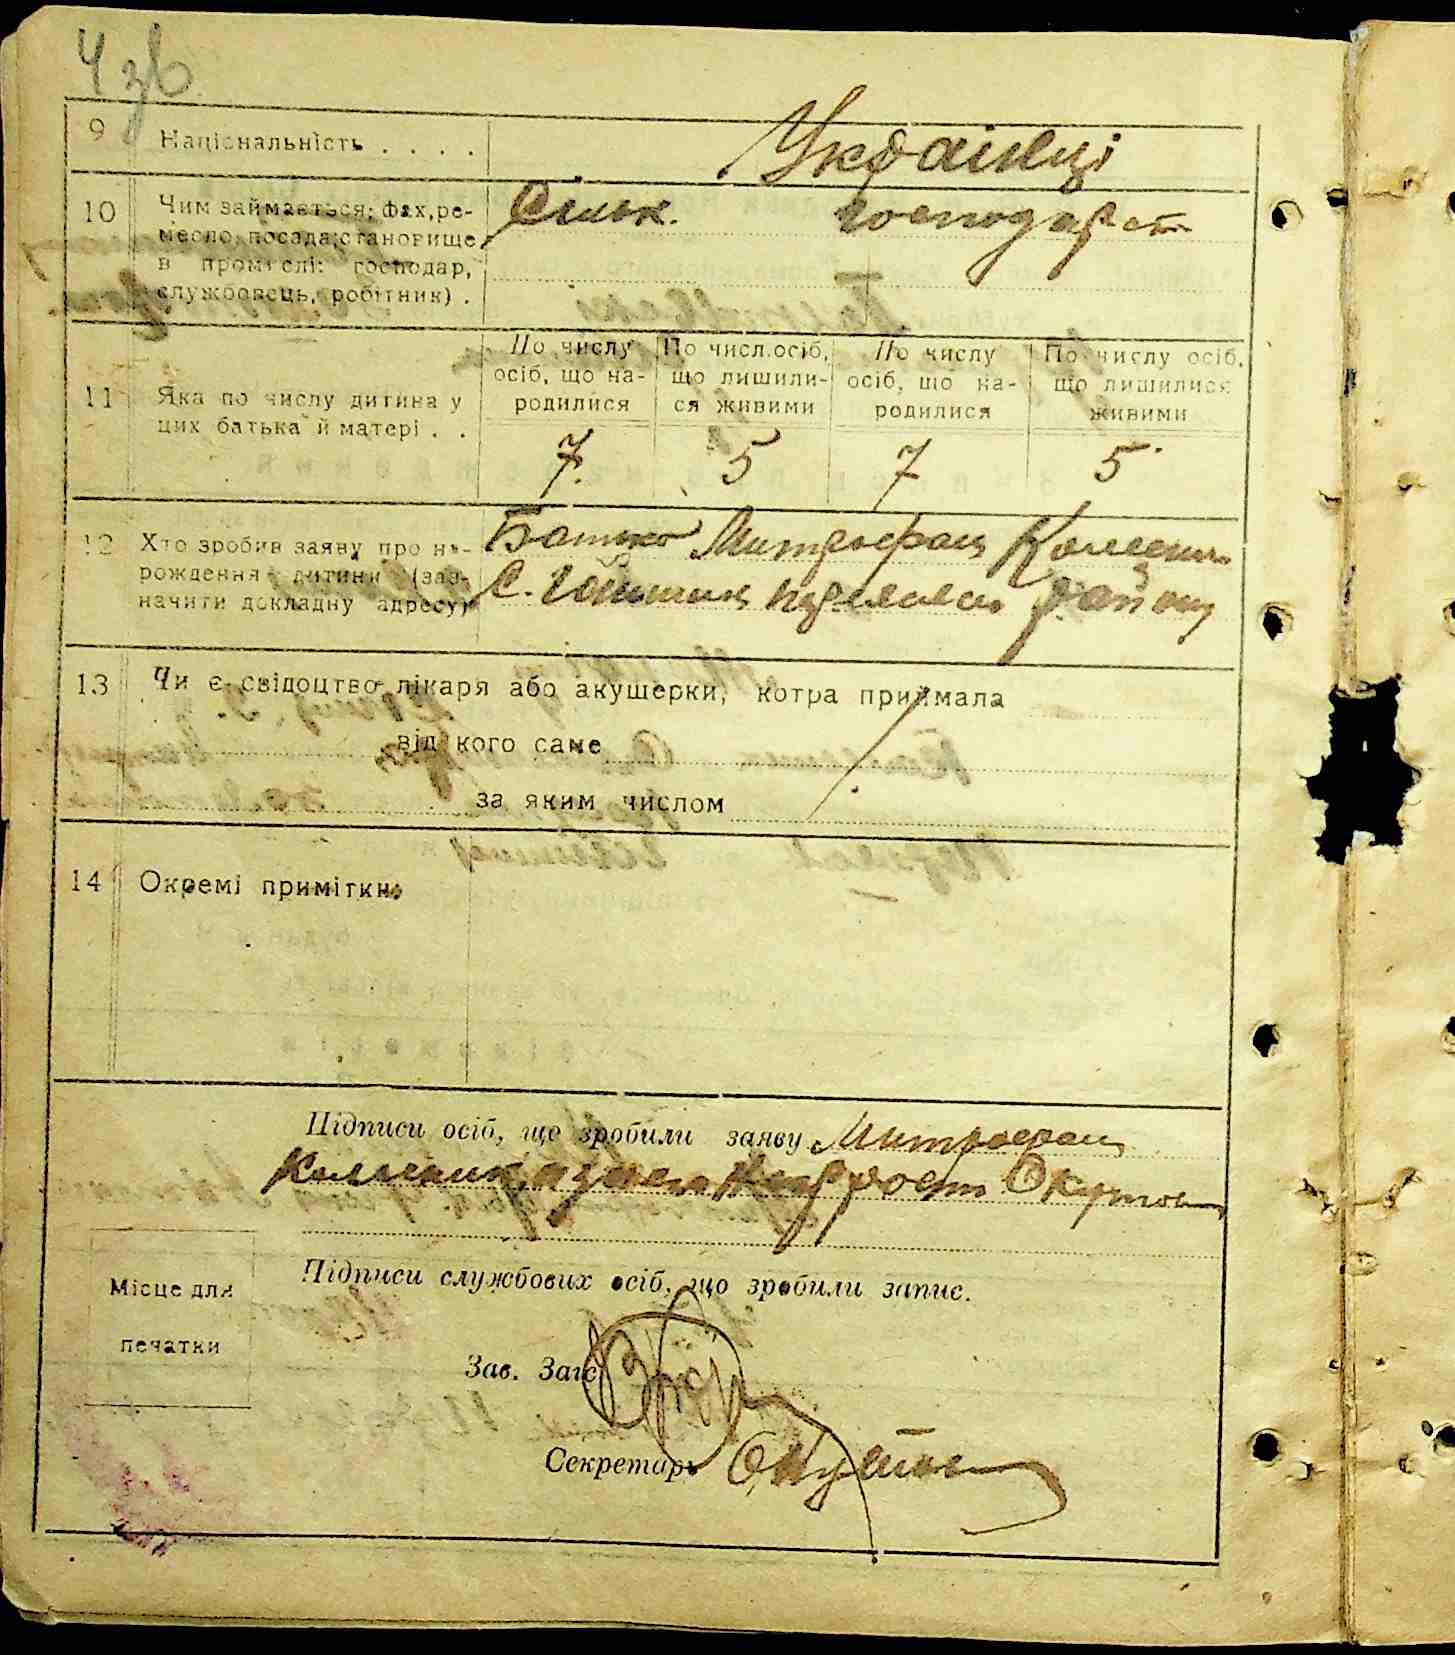 4 зв
9 Національність . . . . Українці
10 Чим займається: фах, ре-
месло, посада; становище
в промислі: господар,
службовець, робітник) .
Сільк. господарст
11 Яка по числу дитина у
цих батька й матері . .
По числу осіб, що на-
родилися
По числ. осіб,
що лишили-
ся живими
По числу
осіб, що на-
родилися
По числу осіб,
що лишилися
живими
7. 5 7 5
12 Хто зробив заяву про на-
рождення дитини (заз-
начити докладну адресу)
Батько Митрофан
С. району
13 Чи є свідоцтво лікаря або акушерки, котра приймала
від кого саме
за яким числом
14 Окремі примітки:
Підписи осіб, що зробили заяву Митрофан
Окутов
Підписи службових осіб, що зробили запис.
Місце для
печатки
Зав. Загс
Секретарь Окутов